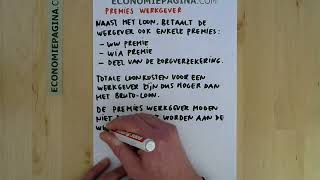 ECONOMIEPAGINA.COM
ECONOMIEPAGINA.COM
PREMIES WERKGEVER
NAAST HET LOON, BETAALT DE
WERGEVER OOK ENKELE PREMIES:
- WW PREMIE
- WIA PREMIE
- DEEL VAN DE ZORGVERZEKERING.
TOTALE LOONKOSTEN VOOR EEN
WERKGEVER ZIJN DUS HOGER DAN
HET BRUTO-LOON.
DE PREMIES WERKGEVER MOGEN
NIET WORDEN AAN DE